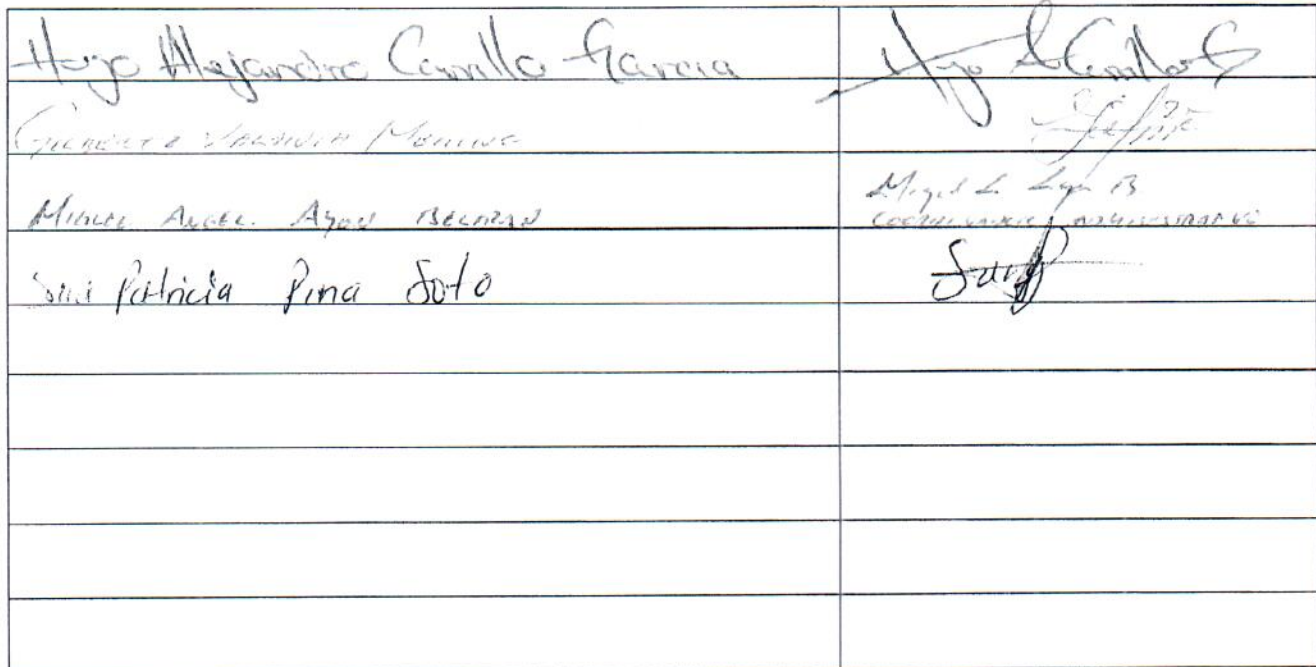 Hugo Alejandro Carrillo Garcia
Hugo A Carrillo G
Gilberto Valdivia
Miguel Angel Ayon Beltran
Miguel A. Ayon B
Coordinador Administrativo
Patricia Pina Soto